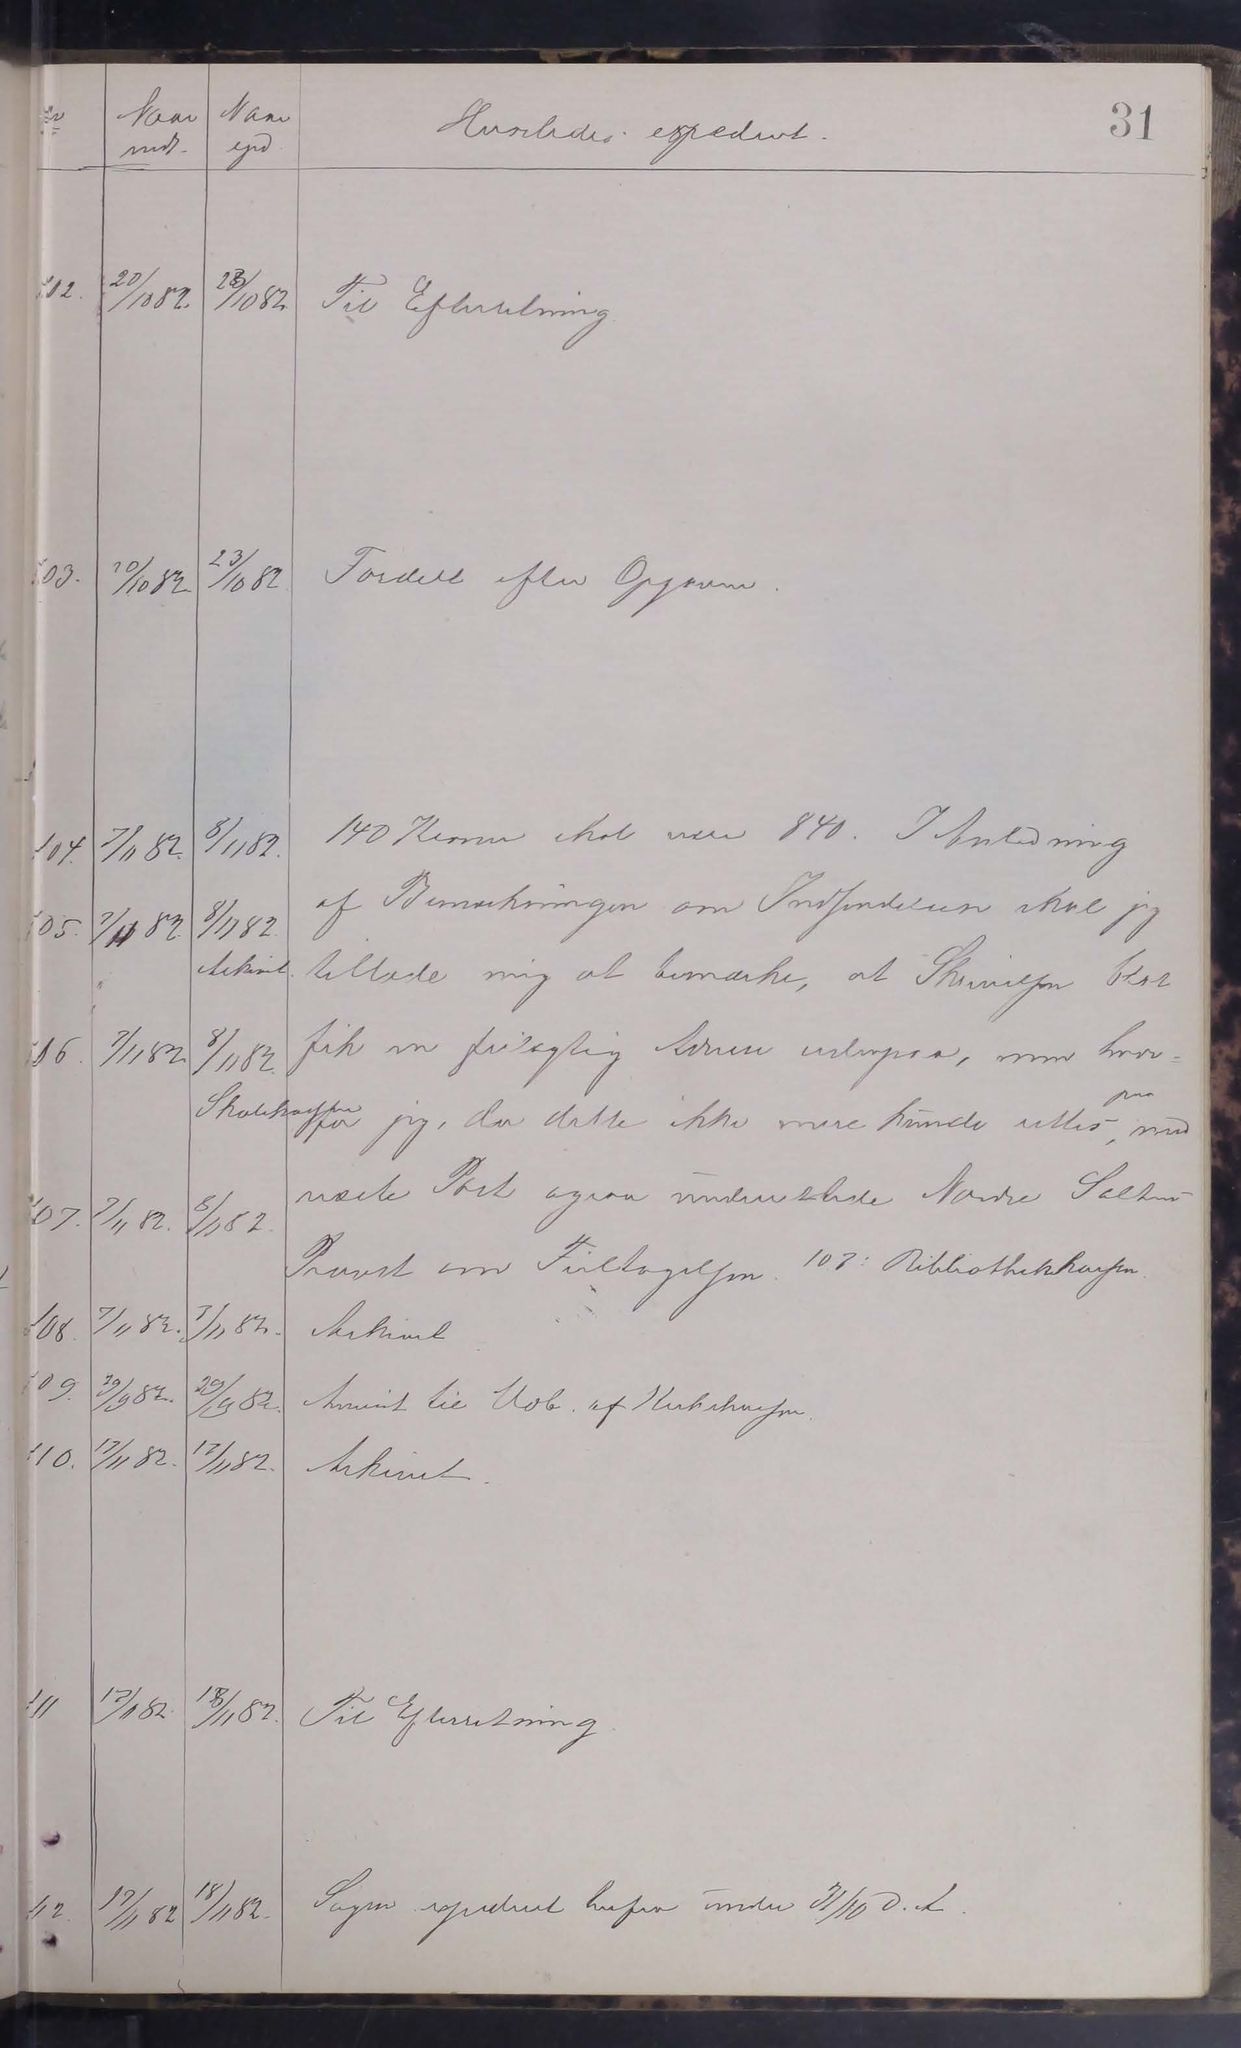 31
Nr Naar Naar Hvorledes expederet.
modt. exp.
102. 20/10 82. 23/10 82. Til Efterretning
103. 20/10 82 23/10 82. Fordelt efter Opgaven.
104. 7/11 82. 8/11 82. 140 Kroner skal være 840. I Anledning
105. 7/11 82. 8/11 82. af Bemærkningen om Indsendelsen skal jeg
" Arkivet. tillade mig at bemærke, at Skrivelsen blot
106. 7/11 82 8/11 82. fik en feilagtig Adresse udenpaa, men hvor-
Skolekassen for jeg, da dette ikke mere kunde rettes, med
paa
107. 7/11 82. 8/11 82. næste Post ogsaa underrettede Nordre Saltens
Provst om Feiltagelsen. 107: Bibliothekkassen.
108. 7/11 82. 7/11 82. Arkivet
109. 29/9 82. 29/9 82. Anvist til Udb. af Kirkekassen.
110. 17/11 82. 17/11 82. Arkivet.
111 17/11 82. 18/11 82. Til Efterretning.
112. 17/11 82 18/11 82. Sagen expederet herfra under 31/10 d. A.